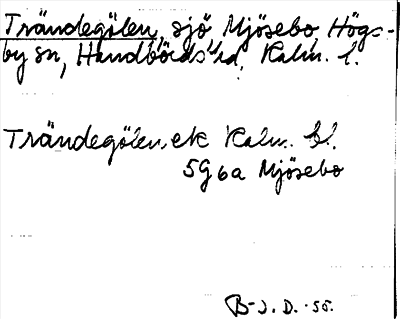 Trändegölen, sjö Mjösebo Högs-
by sn, Handbörds hd, Kalm. l.
Trändegölen, ek Kalm. bl.
5G6a Mjösebo
B-J. D. -55.